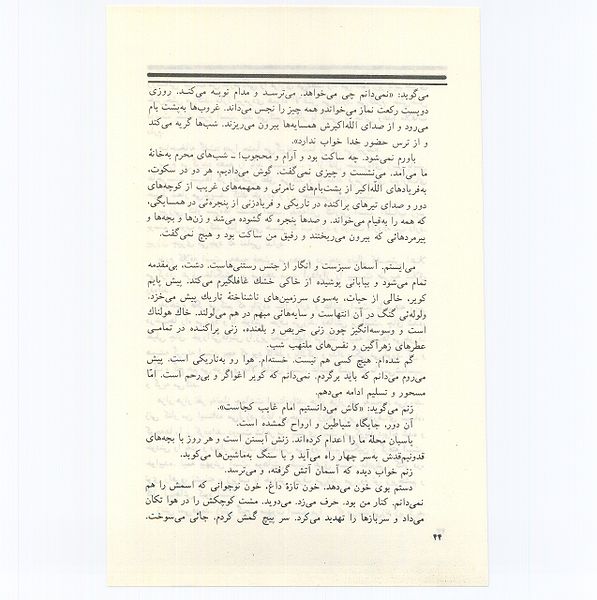 می‌گوید: «نمی‌دانم چی می‌خواهد. می‌ترسد و مدام توبه می‌کند. روزی
دویست رکعت نماز می‌خواند و همه چیز را نجس می‌داند. غروب‌ها به‌پشت بام
می‌رود و از صدای الله‌اکبرش همسایه‌ها بیرون می‌ریزند. شب‌ها گریه می‌کند
و از ترس حضور خدا خواب ندارد».
باورم نمی‌شود. چه ساکت بود و آرام و محجوب! ــ شب‌های محرم به‌خانهٔ
ما می‌آمد. می‌نشست و چیزی نمی‌گفت. گوش می‌دادیم، هر دو در سکوت،
به‌فریادهای الله‌اکبر از پشت‌بام‌های نامرئی و همهمه‌های غریب از کوچه‌های
دور و صدای تیرهای پراکنده در تاریکی و فریادزنی از پنجره‌ئی در همسایگی،
که همه را به‌قیام می‌خواند. و صدها پنجره که گشوده می‌شد و زن‌ها و بچه‌ها و
پیرمردهائی که بیرون می‌ریختند و رفیق من ساکت بود و هیچ نمی‌گفت.
می‌ایستم. آسمان سبزست و انگار از جنس رستنی‌هاست. دشت، بی‌مقدمه
تمام می‌شود و بیابانی پوشیده از خاکی خشك غافلگیرم می‌کند. پیش پایم
کویر، خالی از حیات، به‌سوی سرزمین‌های ناشناختهٔ تاریك پیش می‌خزد.
ولوله‌ئی گنگ در آن انتهاست و سایه‌هائی مبهم در هم می‌لولند. خاك هولناك
است و وسوسه‌انگیز چون زنی حریص و بلعنده، زنی پراکنده در تمامی
عطرهای زهرآگین و نفس‌های ملتهب شب.
گم شده‌ام. هیچ کسی هم نیست. خسته‌ام. هوا رو به‌تاریکی است. پیش
می‌روم می‌دانم که باید برگردم. نمی‌دانم که کویر اغواگر و بی‌رحم است. امّا
مسحور و تسلیم ادامه می‌دهم.
زنم می‌گوید: «کاش می‌دانستیم امام غایب کجاست».
آن دور، جایگاه شیاطین و ارواح گمشده است.
پاسبان محلهٔ ما را اعدام کرده‌اند. زنش آبستن است و هر روز با بچه‌های
قدونیم‌قدش به‌سر چهار راه می‌آید و با سنگ به‌ماشین‌ها می‌کوبد.
زنم خواب دیده که آسمان آتش گرفته، و می‌ترسد.
دستم بوی خون می‌دهد. خون تازهٔ داغ، خون نوجوانی که اسمش را هم
نمی‌دانم. کنار من بود. حرف می‌زد. می‌دوید. مشت کوچکش را در هوا تکان
می‌داد و سربازها را تهدید می‌کرد. سر پیچ گمش کردم. جائی می‌سوخت.
۴۴